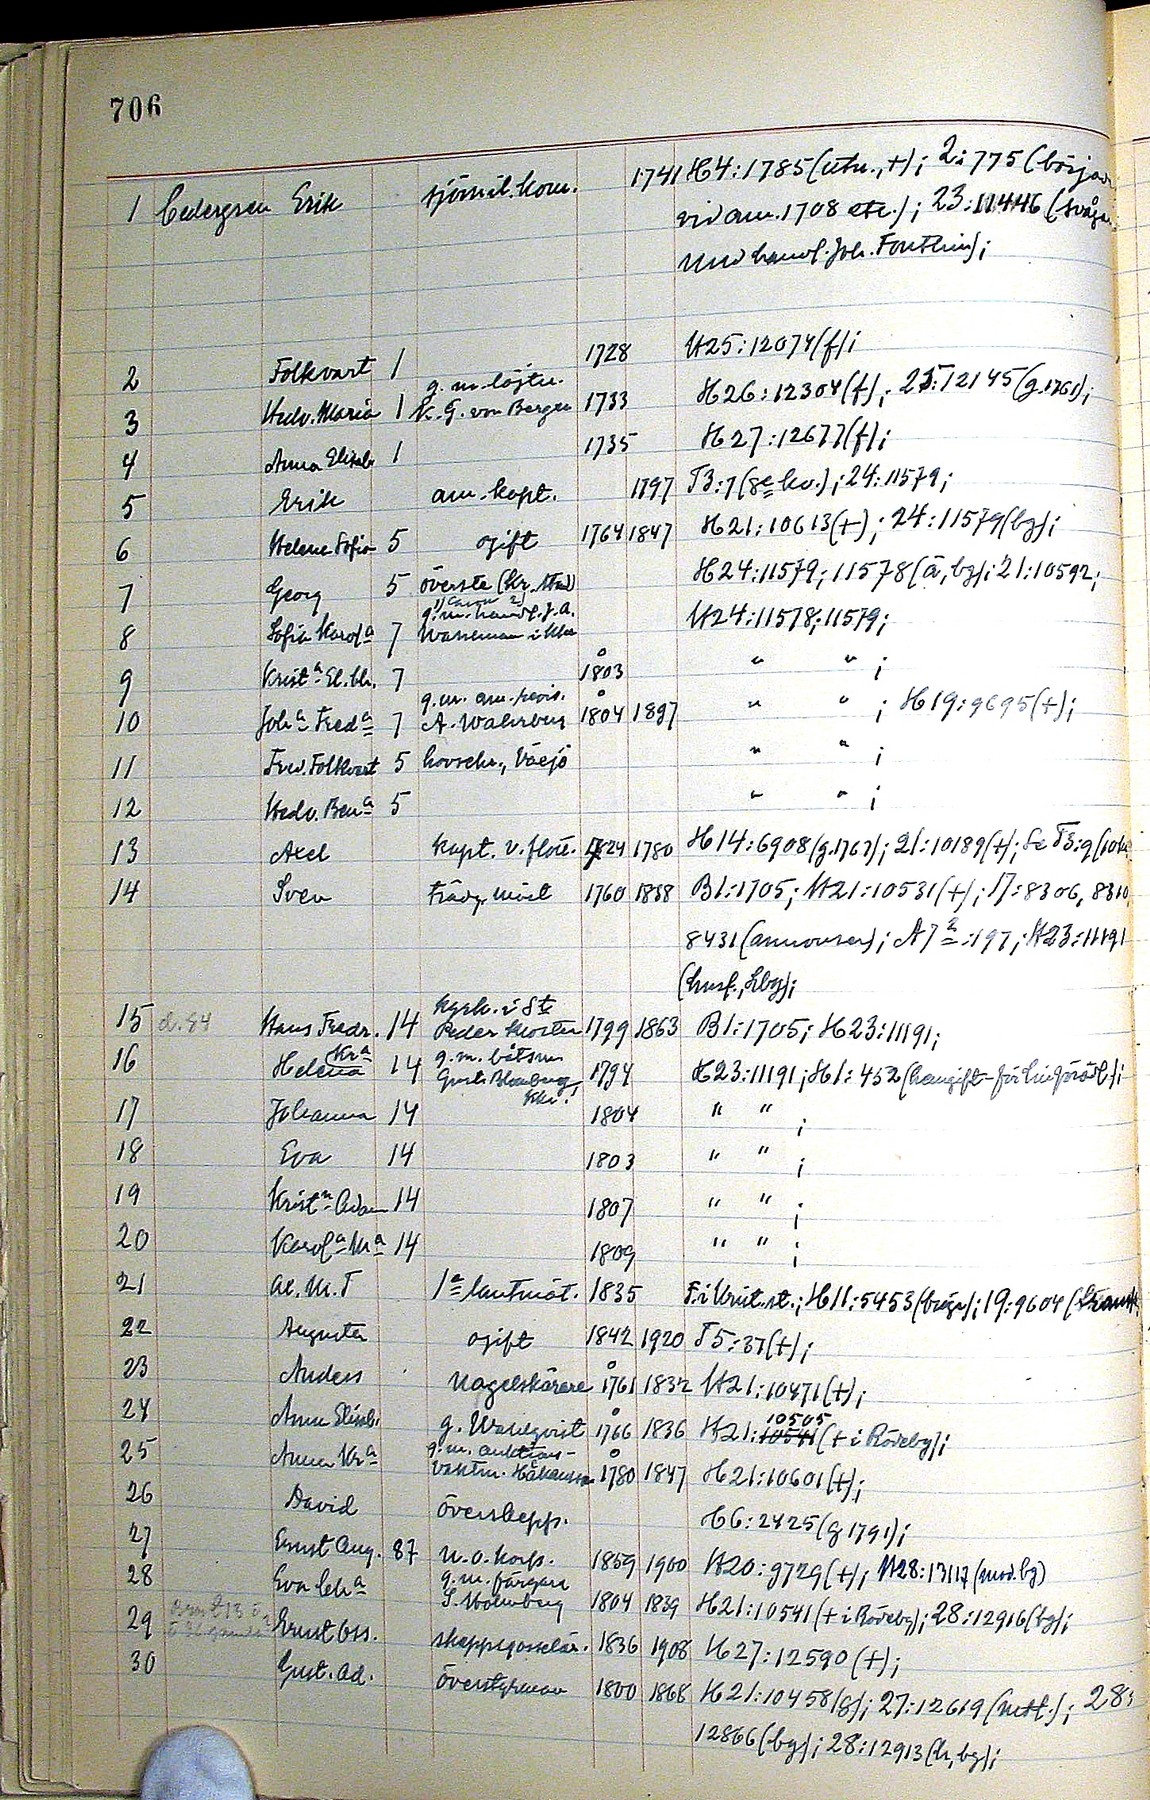 706
1 Cedergren Erik sjömil. kom. 1741 H4:1785 (utn., +); 2:775 (börjar
vid am. 1708 etc.); 23:11446 (svåger
med handl. Joh. Fonthin);
2 Folkvart 1 1728 H25:12074 (f);
3 Hedv. Maria 1 g. m. löjtn. K. G. von Bergen 1733 H26:12304 (f); 25:12145 (g. 1761);
4 Anna Elisab. 1 1735 H27:12677 (f);
5 Erik am.-kapt. 1797 T3:7 (8e kv.); 24:11579;
6 Helena Sofia 5 ogift 1764 1847 H21:10613 (+); 24:11579 (bg);
7 Georg 5 överste (Kr. stad) H24:11579; 11578 (ä, bg); 21:10592;
8 Sofia Karola 7 g. m. handl. J. A. H24:11578; 11579;
9 Krista El.bh. 7 1803 " " ;
10 Joha Freda 7 g. m. am.-revis. A. 1804 1897 " " ; H19:9695 (+);
11 Fred. Folkvart 5 hovsekr., Växjö " " ;
12 Hedv. Bena 5 " " ;
13 Axel kapt. v. flott. 1724 1780 H14:6908 (g. 1767); 21:10189 (+); Se T3:9
14 Sven trädg. mäst 1760 1838 B1:1705; H21:10531 (+); 17:8306, 8310,
8431 (annonser); A7a:197; H23:11191
(husf., hbg);
15 d. 84 Hans Fredr. 14 kyrk. i St. Peder Kloster 1799 1863 B1:1705; H23:11191;
16 Helena Kra 14 g. m. båtsm Gust. Blomberg, Kkr. 1794 H23:11191; H1:452
17 Johanna 14 1804 " " ;
18 Eva 14 1803 " " ;
19 Kristn 14 1807 " " ;
20 Karola Ma 14 1809 " " ;
21 Al. M. T 1e lantmät. 1835 F. i ; H11:5453 ; 19:9604
22 Augusta ogift 1842 1920 T5:37 (+);
23 Anders Nagelskärare 1761 1832 H21:10471 (+);
24 Anna Elisab. g. Wahlqvist 1766 1836 H21:10505 (+ i Rödeby);
25 Anna Kra g. m. auktions- vaktm. Håkansson 1780 1847 H21:10601 (+);
26 David överskepp. H6:2425 (g 1791);
27 Ernst Aug. 87 u. o. korp. 1859 1900 H20:9729 (+); H28:13117 (mod. bg)
28 Eva Cha g. m. färgare S. Holmberg 1804 1839 H21:10541 (+ i Rödeby); 28:12916 (bg);
29 Ernst Osc. skeppsgosselär. 1836 1908 H27:12590 (+);
30 Gust. Ad. överstyrman 1800 1868 H21:10458 (g); 27:12619 ; 28:
12866 (bg); 28:12913 (h, bg);